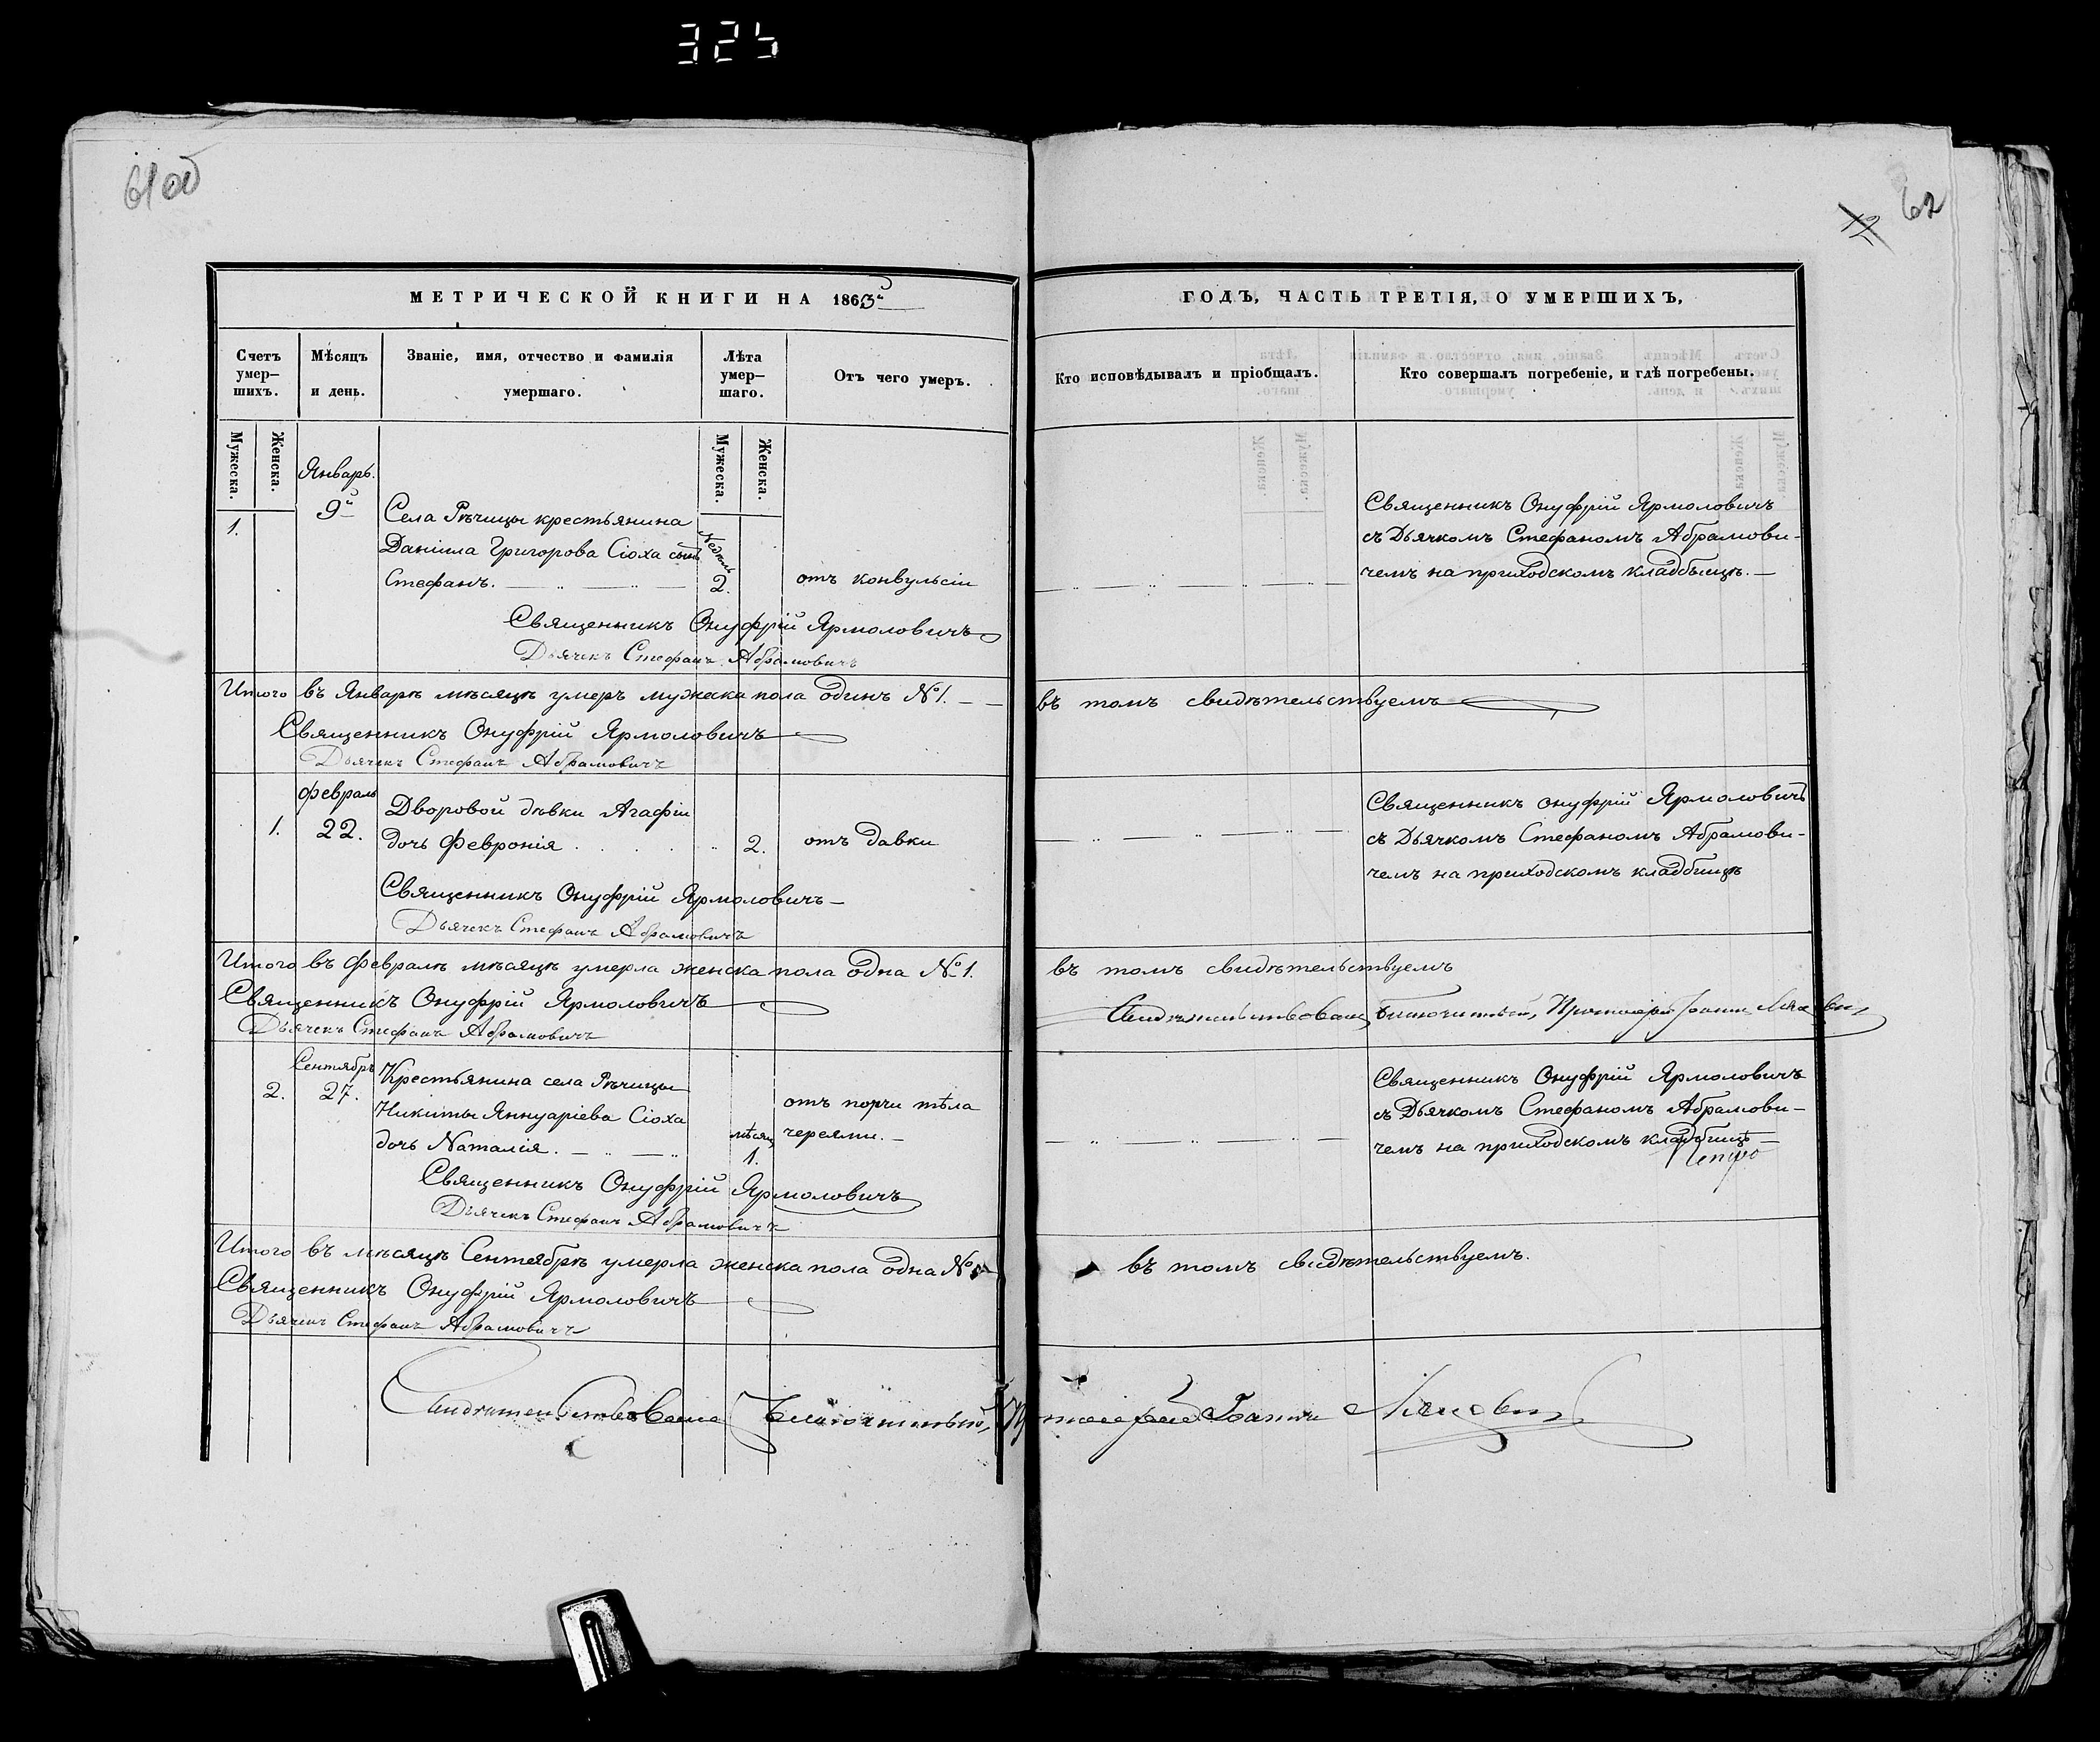 325
61 об
62
МЕТРИЧЕСКОЙ КНИГИ НА 1863й
ГОДЪ, ЧАСТЬ ТРЕТІЯ, О УМЕРШИХЪ,
Счетъ умер—шихъ.
Мѣсяцъ и день.
Званіе, имя, отчество и фамилія умершаго.
Лѣта умер—шаго.
Отъ чего умеръ.
Кто исповѣдывалъ и пріобщалъ.
Кто совершалъ погребеніе, и гдѣ погребены.
Мужеска.
Женска.
Мужеска.
Женска.
Январь.
1.
9й
Села Рѣчицы крестьянина
Даніила Григорова Сіоха сынъ
Стефанъ.
Недѣль
2.
отъ конвульсіи
Священникъ Онуфрій Ярмоловичъ
съ Дьячкомъ Стефаномъ Абрамови-
чемъ на приходскомъ кладбыщѣ.—
Священникъ Онуфрій Ярмоловичъ
Дьячекъ Стефанъ Абрамовичъ
Итого въ Январѣ мѣсяцѣ умеръ мужеска пола одинъ №1. — —
въ томъ свидѣтельствуемъ
Священникъ Онуфрій Ярмоловичъ
Дьячекъ Стефанъ Абрамовичъ
Февраль
1.
22.
Дворовой дѣвки Агафіи
дочь Февронія
2.
отъ давки
Священникъ Онуфрій Ярмоловичъ
съ Дьячкомъ Стефаномъ Абрамови-
чемъ на приходскомъ кладбищѣ
Священникъ Онуфрій Ярмоловичъ—
Дьячекъ Стефанъ Абрамовичъ
Итого въ Февралѣ мѣсяцѣ умерла женска пола одна №1.
въ томъ свидѣтельствуемъ
Священникъ Онуфрій Ярмоловичъ
Дьячекъ Стефанъ Абрамовичъ
Свидѣтельствовалъ Благочинный, Протоіерей Іоаннъ
Сентябрь
2.
27.
Крестьянина села Рѣчицы
Никиты Яннуаріева Сіоха
дочь Наталія.
мѣсяц
1.
отъ порчи тѣла
череями.—
Священникъ Онуфрій Ярмоловичъ
съ Дьячкомъ Стефаномъ Абрамови—
чемъ на приходскомъ кладбищѣ—
Священникъ Онуфрій Ярмоловичъ
Дьячекъ Стефанъ Абрамовичъ
Итого въ мѣсяцѣ Сентябрѣ умерла женска пола одна №
въ томъ свидѣтельствуемъ.
Священникъ Онуфрій Ярмоловичъ
Дьячекъ Стефанъ Абрамовичъ
Свидѣтельствовалъ Благочинный, Протоіерей Іоаннъ